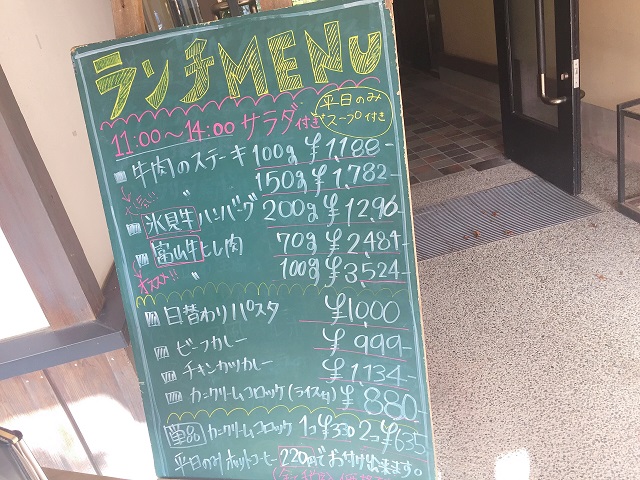 ランチMENU
11:00~14:00 サラダ付き 平日のみ スープ付き
牛肉のステーキ 100g ¥1,188-
〃 150g ¥1,782-
人気!!
氷見牛ハンバーグ 200g ¥1,296-
富山牛ヒレ肉 70g ¥2,484-
オススメ!! 〃 100g ¥3,524-
日替わりパスタ ¥1,000
ビーフカレー ¥999-
チキンカツカレー ¥1,134-
カニクリームコロッケ(ライス付) ¥880-
単品 カニクリームコロッケ 1コ¥330 2コ¥635
平日のみホットコーヒー220円でお付け出来ます。